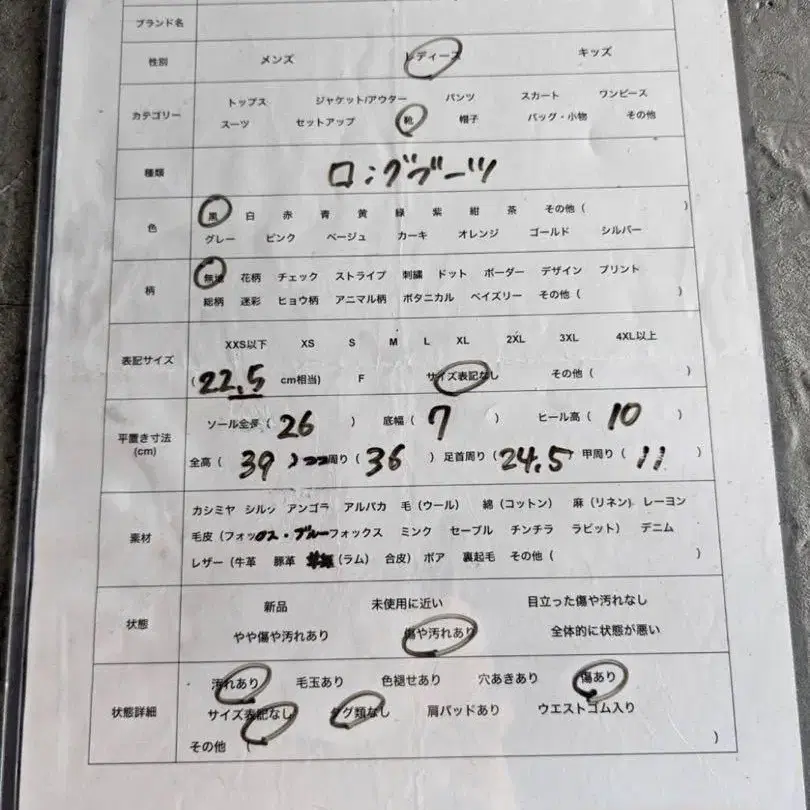 ブランド名
性別 メンズ レディース キッズ
カテゴリー トップス ジャケット/アウター パンツ スカート ワンピース
スーツ セットアップ 靴 帽子 バッグ・小物 その他
種類 ロングブーツ
色 黒 白 赤 青 黄 緑 紫 紺 茶 その他 ( )
グレー ピンク ベージュ カーキ オレンジ ゴールド シルバー
柄 無地 花柄 チェック ストライプ 刺繍 ドット ボーダー デザイン プリント
総柄 迷彩 ヒョウ柄 アニマル柄 ボタニカル ペイズリー その他 ( )
表記サイズ XXS以下 XS S M L XL 2XL 3XL 4XL以上
(22.5 cm相当) F サイズ表記なし その他 ( )
平置き寸法 (cm) ソール全長 ( 26 ) 底幅 ( 7 ) ヒール高 ( 10 )
全高 ( 39 ) 周り ( 36 ) 足首周り ( 24.5 ) 甲周り ( 11 )
素材 カシミヤ シルク アンゴラ アルパカ 毛 (ウール) 綿 (コットン) 麻 (リネン) レーヨン
毛皮 (フォックス・ブルーフォックス ミンク セーブル チンチラ ラビット) デニム
レザー (牛革 豚革 (ラム) 合皮) ボア 裏起毛 その他 ( )
状態 新品 未使用に近い 目立った傷や汚れなし
やや傷や汚れあり 傷や汚れあり 全体的に状態が悪い
状態詳細 汚れあり 毛玉あり 色褪せあり 穴あきあり 傷あり
サイズ表記なし タグ類なし 肩パッドあり ウエストゴム入り
その他 ( )